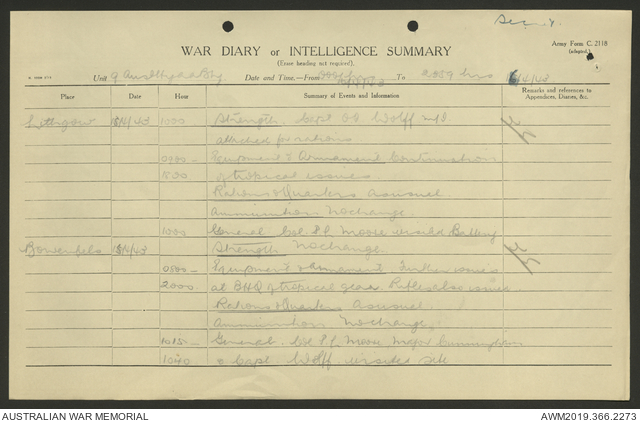 WAR DIARY or INTELLIGENCE SUMMARY
(Erase heading not required).
Army Form C. 2118
(adapted.)
Unit 9 Aust Bty Date and Time.—From To 2359 hrs 16/4/43
Place Date Hour Summary of Events and Information Remarks and references to Appendices, Diaries, &c.
Lithgow 15/4/43 1000 Strength. Capt Wolff
attached for rations
0900 — Equipment & Armament Continuation
1500 of tropical issues.
Rations & Quarters As usual.
Ammunition No change.
1000 General Col P.L. Moore visited Battery
Bowenfels 15/4/43 Strength No change.
0800 — Equipment & Armament. Further issues
2000 at BHQ of tropical gear. Rifles also issued
Rations & Quarters As usual.
Ammunition No change.
1015 — General. Col P.L. Moore Major Cunningham
1040 & Capt. Wolff visited site
AUSTRALIAN WAR MEMORIAL
AWM2019.366.2273